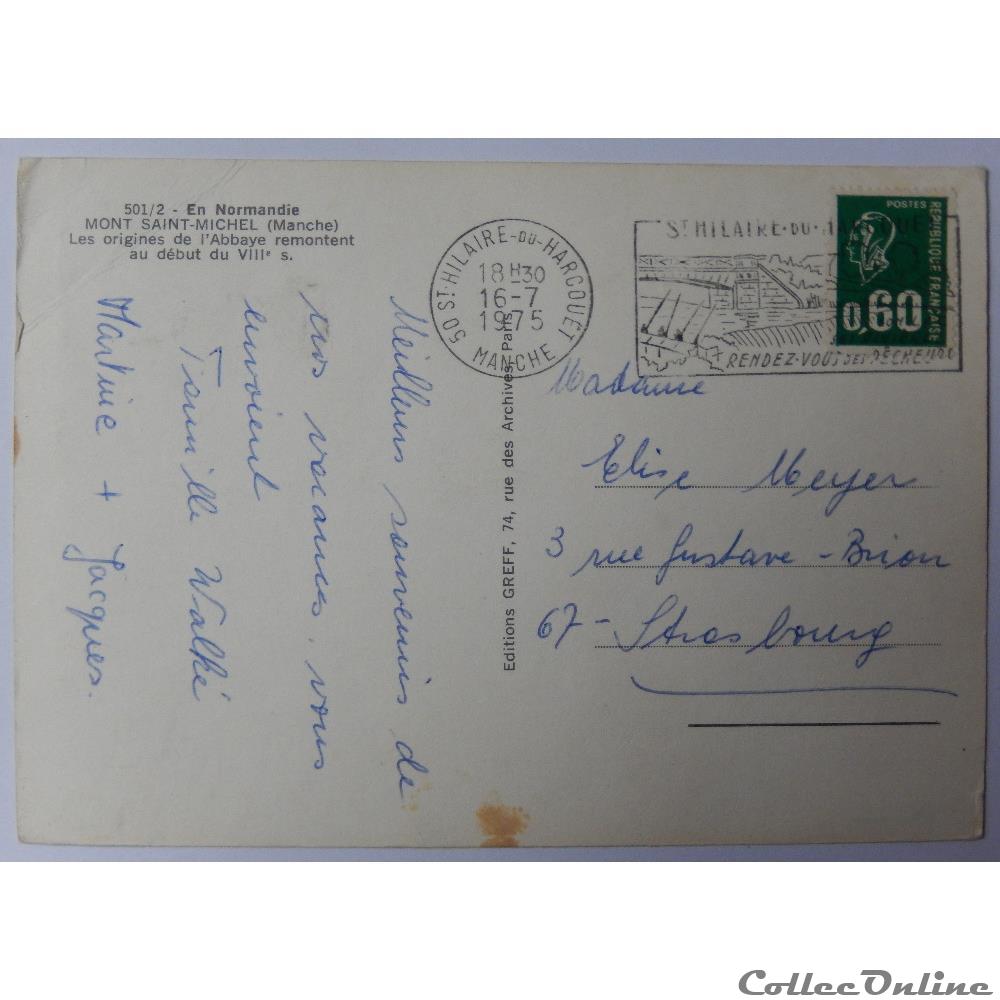 501/2 - En Normandie
MONT SAINT-MICHEL (Manche)
Les origines de l'Abbaye remontent
au début du VIIIe s.
Meilleurs souvenirs de
nos vacances. vous
envoient
Famille Walké
Martine + Jacques.
Editions GREFF, 74, rue des Archives, Paris
50 ST-HILAIRE-DU-HARCOUET
18 H 30
16-7
1975
MANCHE
ST HILAIRE-DU-HARCOUET
RENDEZ-VOUS DES PÊCHEURS
POSTES
REPUBLIQUE FRANÇAISE
0,60
Madame
Elise Meyer
3 rue Gustave-Brion
67- Strasbourg
CollecOnline